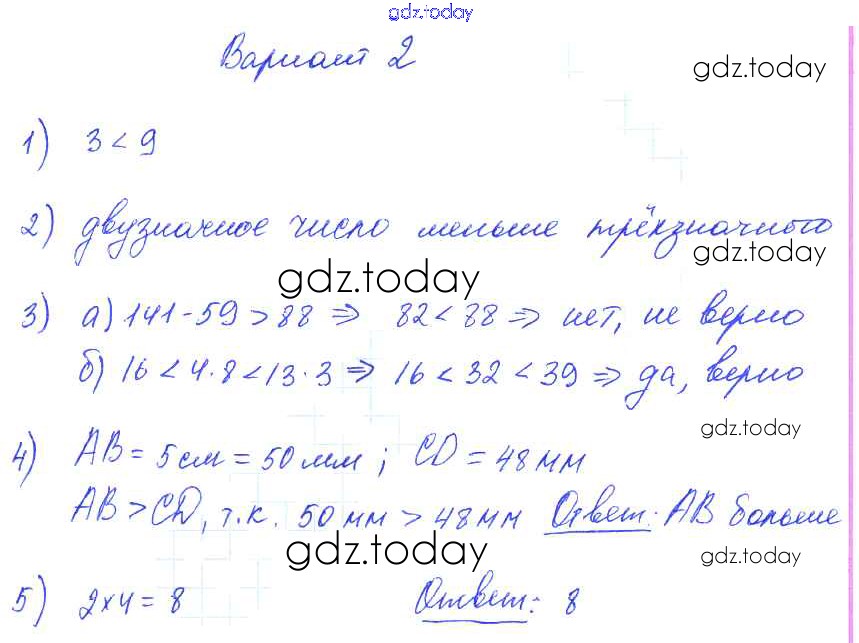 gdz.today
Вариант 2
gdz.today
1) 3 < 9
2) двузначное число меньше трёхзначного
gdz.today
gdz.today
3) а) 141 - 59 > 88 => 82 < 88 => нет, не верно
б) 16 < 4·8 < 13·3 => 16 < 32 < 39 => да, верно
gdz.today
4) AB = 5 см = 50 мм; CD = 48 мм
AB > CD, т.к. 50 мм > 48 мм Ответ: AB больше
gdz.today
gdz.today
5) 2×4 = 8 Ответ: 8